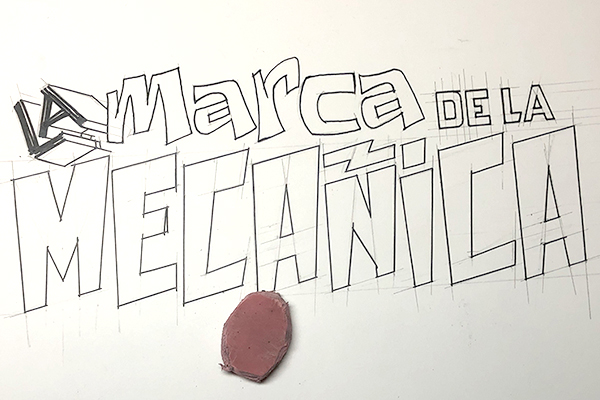 LA marca DE LA
MECAÑiCA